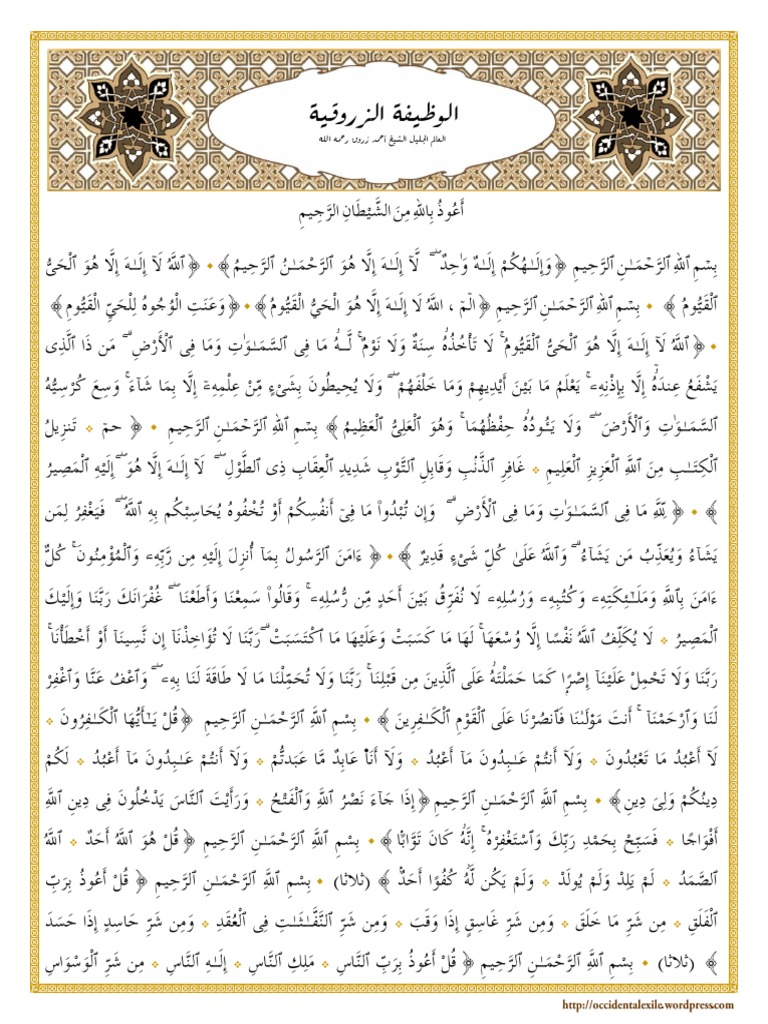 الوظيفة الزروقية
العالم الجليل الشيخ أحمد زروق رحمه الله
أَعُوذُ بِاللهِ مِنَ الشَّيْطَانِ الرَّجِيمِ
بِسْمِ اللهِ ٱلرَّحْمَـٰنِ ٱلرَّحِيمِ ﴿ وَإِلَـٰهُكُمْ إِلَـٰهٌ وَٰحِدٌ ۖ لَّآ إِلَـٰهَ إِلَّا هُوَ ٱلرَّحْمَـٰنُ ٱلرَّحِيمُ ﴾ • ﴿ ٱللَّهُ لَآ إِلَـٰهَ إِلَّا هُوَ ٱلْحَىُّ
ٱلْقَيُّومُ ﴾ • بِسْمِ اللهِ ٱلرَّحْمَـٰنِ ٱلرَّحِيمِ ﴿ الٓمٓ ، اللَّهُ لَا إِلَـٰهَ إِلَّا هُوَ الْحَيُّ الْقَيُّومُ ﴾ • ﴿ وَعَنَتِ الْوُجُوهُ لِلْحَيِّ الْقَيُّومِ ﴾
• ﴿ ٱللَّهُ لَآ إِلَـٰهَ إِلَّا هُوَ ٱلْحَىُّ ٱلْقَيُّومُ ۚ لَا تَأْخُذُهُۥ سِنَةٌ وَلَا نَوْمٌ ۚ لَّهُۥ مَا فِى ٱلسَّمَـٰوَٰتِ وَمَا فِى ٱلْأَرْضِ ۗ مَن ذَا ٱلَّذِى
يَشْفَعُ عِندَهُۥٓ إِلَّا بِإِذْنِهِۦ ۚ يَعْلَمُ مَا بَيْنَ أَيْدِيهِمْ وَمَا خَلْفَهُمْ ۖ وَلَا يُحِيطُونَ بِشَىْءٍ مِّنْ عِلْمِهِۦٓ إِلَّا بِمَا شَآءَ ۚ وَسِعَ كُرْسِيُّهُ
ٱلسَّمَـٰوَٰتِ وَٱلْأَرْضَ ۖ وَلَا يَـُٔودُهُۥ حِفْظُهُمَا ۚ وَهُوَ ٱلْعَلِىُّ ٱلْعَظِيمُ ﴾ بِسْمِ اللهِ ٱلرَّحْمَـٰنِ ٱلرَّحِيمِ • ﴿ حمٓ • تَنزِيلُ
ٱلْكِتَـٰبِ مِنَ ٱللَّهِ ٱلْعَزِيزِ ٱلْعَلِيمِ • غَافِرِ ٱلذَّنۢبِ وَقَابِلِ ٱلتَّوْبِ شَدِيدِ ٱلْعِقَابِ ذِى ٱلطَّوْلِ ۖ لَآ إِلَـٰهَ إِلَّا هُوَ ۖ إِلَيْهِ ٱلْمَصِيرُ
﴾ • ﴿ لِلَّهِ مَا فِى ٱلسَّمَـٰوَٰتِ وَمَا فِى ٱلْأَرْضِ ۗ وَإِن تُبْدُوا۟ مَا فِىٓ أَنفُسِكُمْ أَوْ تُخْفُوهُ يُحَاسِبْكُم بِهِ ٱللَّهُ ۖ فَيَغْفِرُ لِمَن
يَشَآءُ وَيُعَذِّبُ مَن يَشَآءُ ۗ وَٱللَّهُ عَلَىٰ كُلِّ شَىْءٍ قَدِيرٌ ﴾ • ﴿ ءَامَنَ ٱلرَّسُولُ بِمَآ أُنزِلَ إِلَيْهِ مِن رَّبِّهِۦ وَٱلْمُؤْمِنُونَ ۚ كُلٌّ
ءَامَنَ بِٱللَّهِ وَمَلَـٰٓئِكَتِهِۦ وَكُتُبِهِۦ وَرُسُلِهِۦ لَا نُفَرِّقُ بَيْنَ أَحَدٍ مِّن رُّسُلِهِۦ ۚ وَقَالُوا۟ سَمِعْنَا وَأَطَعْنَا ۖ غُفْرَانَكَ رَبَّنَا وَإِلَيْكَ
ٱلْمَصِيرُ • لَا يُكَلِّفُ ٱللَّهُ نَفْسًا إِلَّا وُسْعَهَا ۚ لَهَا مَا كَسَبَتْ وَعَلَيْهَا مَا ٱكْتَسَبَتْ ۗ رَبَّنَا لَا تُؤَاخِذْنَآ إِن نَّسِينَآ أَوْ أَخْطَأْنَا ۚ
رَبَّنَا وَلَا تَحْمِلْ عَلَيْنَآ إِصْرًا كَمَا حَمَلْتَهُۥ عَلَى ٱلَّذِينَ مِن قَبْلِنَا ۚ رَبَّنَا وَلَا تُحَمِّلْنَا مَا لَا طَاقَةَ لَنَا بِهِۦ ۖ وَٱعْفُ عَنَّا وَٱغْفِرْ
لَنَا وَٱرْحَمْنَآ ۚ أَنتَ مَوْلَىٰنَا فَٱنصُرْنَا عَلَى ٱلْقَوْمِ ٱلْكَـٰفِرِينَ ﴾ • بِسْمِ ٱللَّهِ ٱلرَّحْمَـٰنِ ٱلرَّحِيمِ ﴿ قُلْ يَـٰٓأَيُّهَا ٱلْكَـٰفِرُونَ •
لَآ أَعْبُدُ مَا تَعْبُدُونَ • وَلَآ أَنتُمْ عَـٰبِدُونَ مَآ أَعْبُدُ • وَلَآ أَنَا۠ عَابِدٌ مَّا عَبَدتُّمْ • وَلَآ أَنتُمْ عَـٰبِدُونَ مَآ أَعْبُدُ • لَكُمْ
دِينُكُمْ وَلِىَ دِينِ ﴾ • بِسْمِ ٱللَّهِ ٱلرَّحْمَـٰنِ ٱلرَّحِيمِ ﴿ إِذَا جَآءَ نَصْرُ ٱللَّهِ وَٱلْفَتْحُ • وَرَأَيْتَ ٱلنَّاسَ يَدْخُلُونَ فِى دِينِ ٱللَّهِ
أَفْوَاجًا • فَسَبِّحْ بِحَمْدِ رَبِّكَ وَٱسْتَغْفِرْهُ ۚ إِنَّهُۥ كَانَ تَوَّابًۢا ﴾ • بِسْمِ ٱللَّهِ ٱلرَّحْمَـٰنِ ٱلرَّحِيمِ ﴿ قُلْ هُوَ ٱللَّهُ أَحَدٌ • ٱللَّهُ
ٱلصَّمَدُ • لَمْ يَلِدْ وَلَمْ يُولَدْ • وَلَمْ يَكُن لَّهُۥ كُفُوًا أَحَدٌۢ ﴾ (ثلاثا) • بِسْمِ ٱللَّهِ ٱلرَّحْمَـٰنِ ٱلرَّحِيمِ ﴿ قُلْ أَعُوذُ بِرَبِّ
ٱلْفَلَقِ • مِن شَرِّ مَا خَلَقَ • وَمِن شَرِّ غَاسِقٍ إِذَا وَقَبَ • وَمِن شَرِّ ٱلنَّفَّـٰثَـٰتِ فِى ٱلْعُقَدِ • وَمِن شَرِّ حَاسِدٍ إِذَا حَسَدَ
﴾ (ثلاثا) • بِسْمِ ٱللَّهِ ٱلرَّحْمَـٰنِ ٱلرَّحِيمِ ﴿ قُلْ أَعُوذُ بِرَبِّ ٱلنَّاسِ • مَلِكِ ٱلنَّاسِ • إِلَـٰهِ ٱلنَّاسِ • مِن شَرِّ ٱلْوَسْوَاسِ
http://occidentalexile.wordpress.com